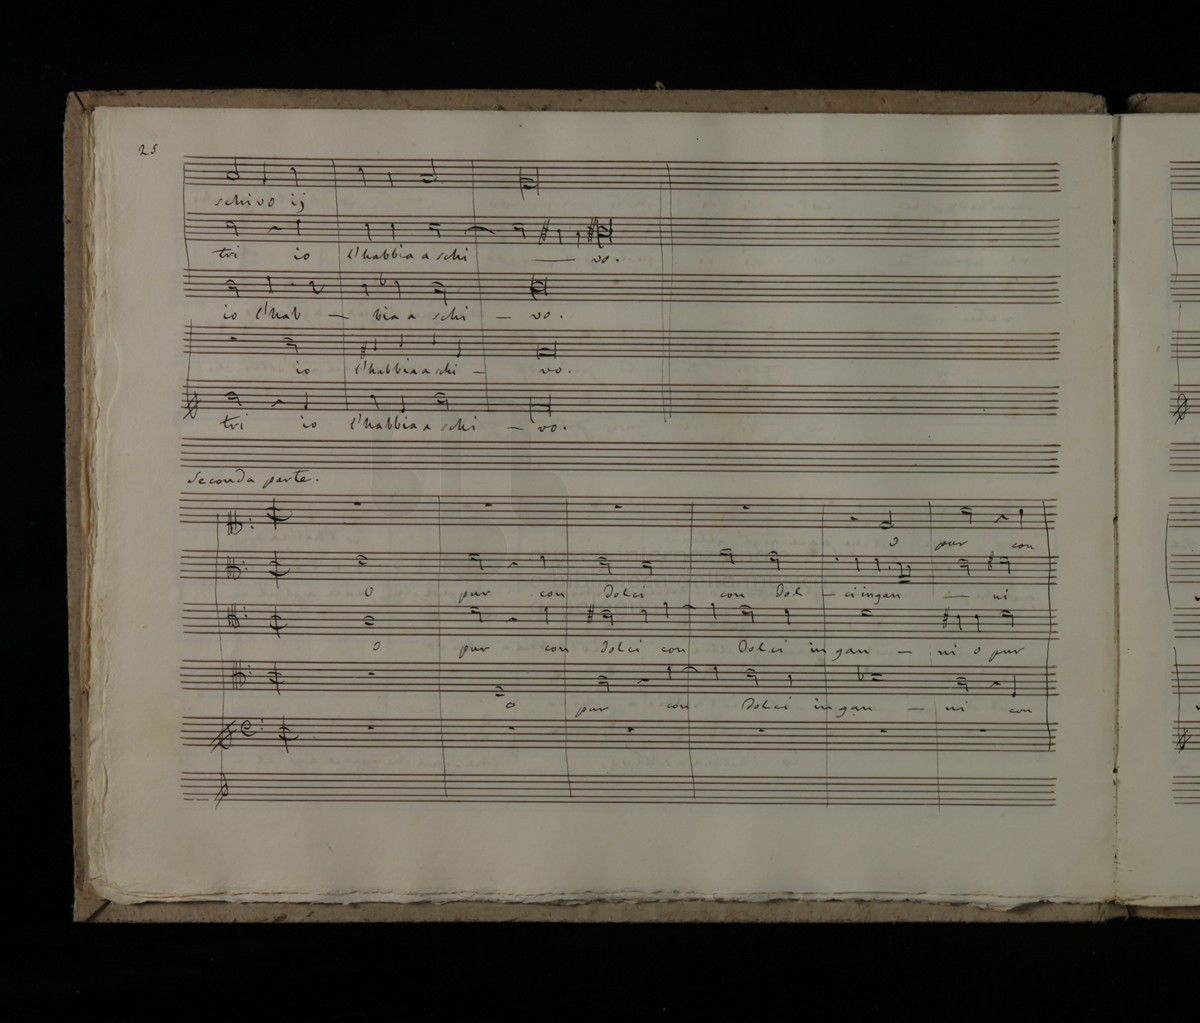 25
schivo ij
tri io l'habbia a schi — vo.
io l'hab — bia a schi — vo.
io l'habbia a schi — vo.
tri io l'habbia a schi — vo.
Seconda parte.
O pur con
O pur con dolci con dol — ci ingan — ni
O pur con dolci con dolci in gan — ni o pur
O pur con dolci in gan — ni con